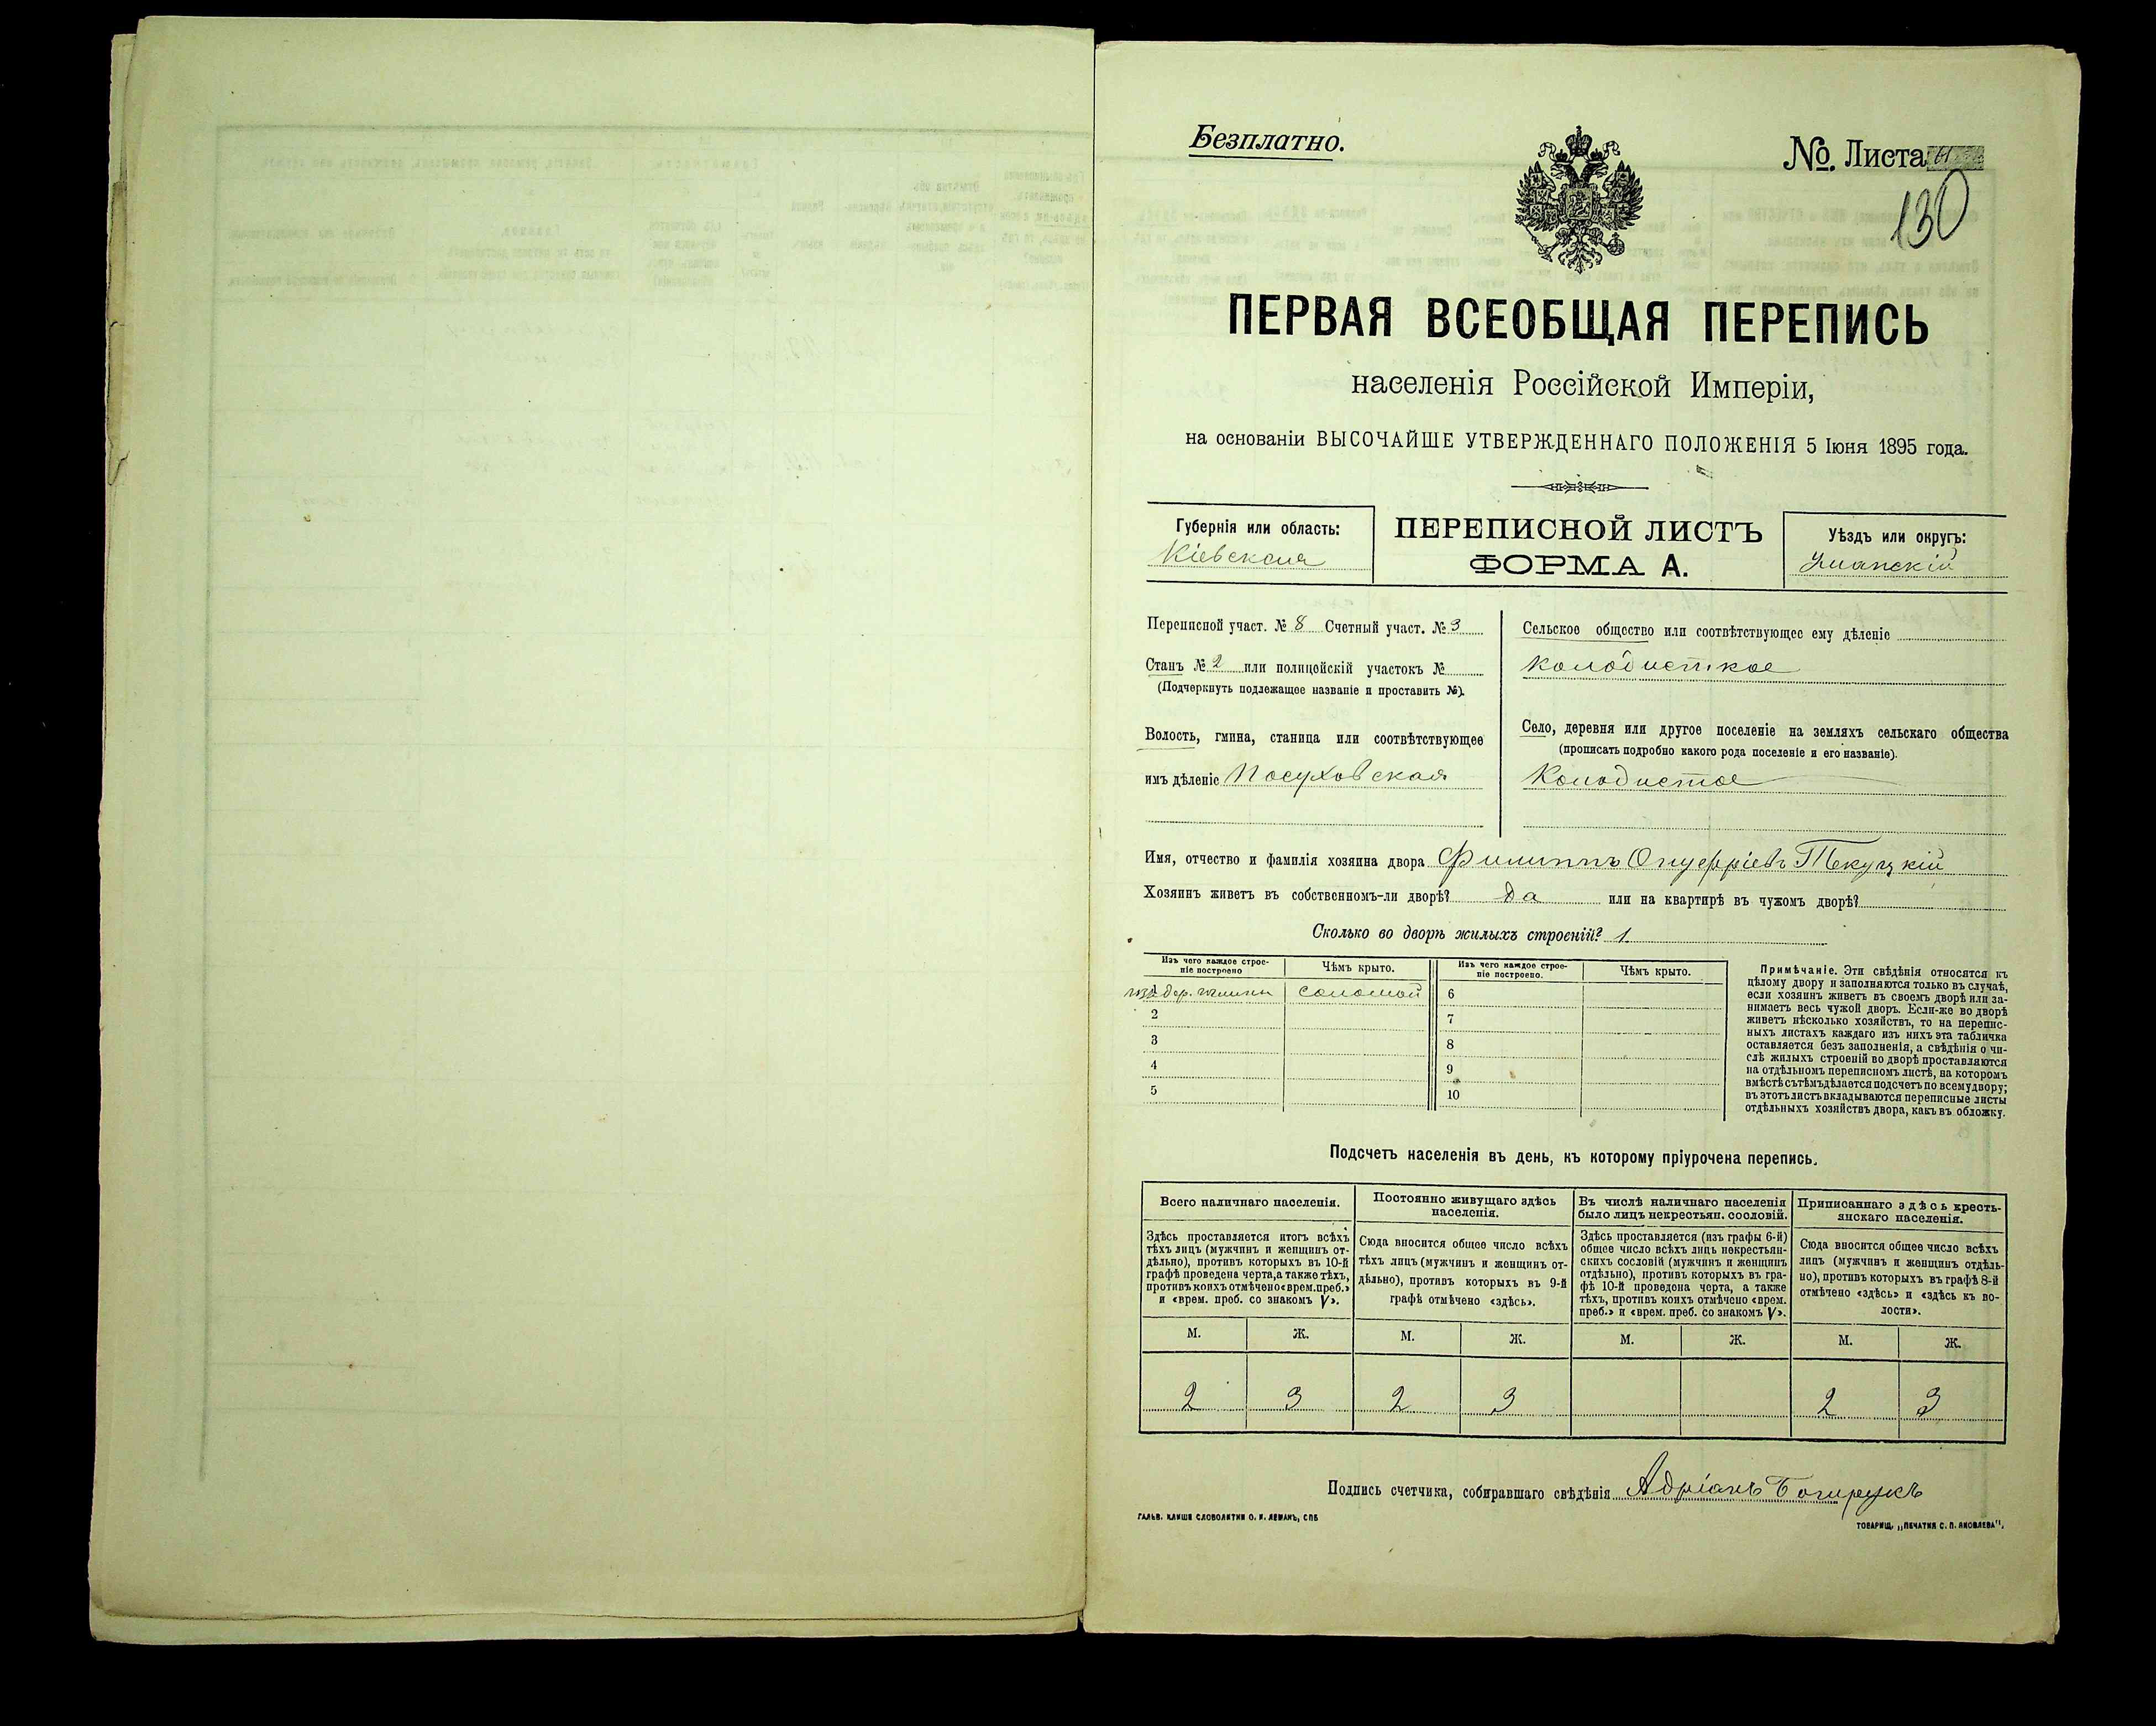 Безплатно.
№. Листа 61
130
ПЕРВАЯ ВСЕОБЩАЯ ПЕРЕПИСЬ
населенія Россійской Имперіи,
на основаніи ВЫСОЧАЙШЕ УТВЕРЖДЕННАГО ПОЛОЖЕНІЯ 5 Іюня 1895 года.
Губернія или область:
Кіевская
ПЕРЕПИСНОЙ ЛИСТЪ
ФОРМА А.
Уѣздъ или округъ:
Уманскій
Переписной участ. № 8 Счетный участ. № 3
Станъ № 2 или полицейскій участокъ №
(Подчеркнуть подлежащее названіе и проставить №).
Волость, гмина, станица или соотвѣтствующее
имъ дѣленіе Посуховская
Сельское общество или соотвѣтствующее ему дѣленіе
Колодистское
Село, деревня или другое поселеніе на земляхъ сельскаго общества
(прописать подробно какого рода поселеніе и его названіе).
Колодистое
Имя, отчество и фамилія хозяина двора Филиппъ Онуфріевъ Текуцкій
Хозяинъ живетъ въ собственномъ-ли дворѣ? да или на квартирѣ въ чужомъ дворѣ?
Сколько во дворѣ жилыхъ строеній? 1.
Изъ чего каждое строе-
ніе построено
Чѣмъ крыто.
Изъ чего каждое строе-
ніе построено.
Чѣмъ крыто.
1 изъ дер. и глины соломой 6
2 7
3 8
4 9
5 10
Примѣчаніе. Эти свѣдѣнія относятся къ
цѣлому двору и заполняются только въ случаѣ,
если хозяинъ живетъ въ своемъ дворѣ или за-
нимаетъ весь чужой дворъ. Если-же во дворѣ
живетъ нѣсколько хозяйствъ, то на перепис-
ныхъ листахъ каждаго изъ нихъ эта табличка
оставляется безъ заполненія, а свѣдѣнія о чи-
слѣ жилыхъ строеній во дворѣ проставляются
на отдѣльномъ переписномъ листѣ, на которомъ
вмѣстѣ съ тѣмъ дѣлается подсчетъ по всему двору;
въ этотъ листъ вкладываются переписные листы
отдѣльныхъ хозяйствъ двора, какъ въ обложку.
Подсчетъ населенія въ день, къ которому пріурочена перепись.
Всего наличнаго населенія.
Здѣсь проставляется итогъ всѣхъ
тѣхъ лицъ (мужчинъ и женщинъ от-
дѣльно), противъ которыхъ въ 10-й
графѣ проведена черта, а также тѣхъ,
противъ коихъ отмѣчено «врем. преб.»
и «врем. преб. со знакомъ V».
Постоянно живущаго здѣсь
населенія.
Сюда вносится общее число всѣхъ
тѣхъ лицъ (мужчинъ и женщинъ от-
дѣльно), противъ которыхъ въ 9-й
графѣ отмѣчено «здѣсь».
Въ числѣ наличнаго населенія
было лицъ некрестьян. сословій.
Здѣсь проставляется (изъ графы 6-й)
общее число всѣхъ лицъ некрестьян-
скихъ сословій (мужчинъ и женщинъ
отдѣльно), противъ которыхъ въ гра-
фѣ 10-й проведена черта, а также
тѣхъ, противъ коихъ отмѣчено «врем.
преб.» и «врем. преб. со знакомъ V».
Приписаннаго здѣсь кресть-
янскаго населенія.
Сюда вносится общее число всѣхъ
лицъ (мужчинъ и женщинъ отдѣль-
но), противъ которыхъ въ графѣ 8-й
отмѣчено «здѣсь» и «здѣсь къ во-
лости».
М. Ж. М. Ж. М. Ж. М. Ж.
2 3 2 3 2 3
Подпись счетчика, собиравшаго свѣдѣнія Адріанъ
ГАЛЬВ. КЛИШЕ СЛОВОЛИТНИ О. И. ЛЕМАНЪ, СПБ
ТОВАРИЩ. „ПЕЧАТНЯ С. П. ЯКОВЛЕВА".